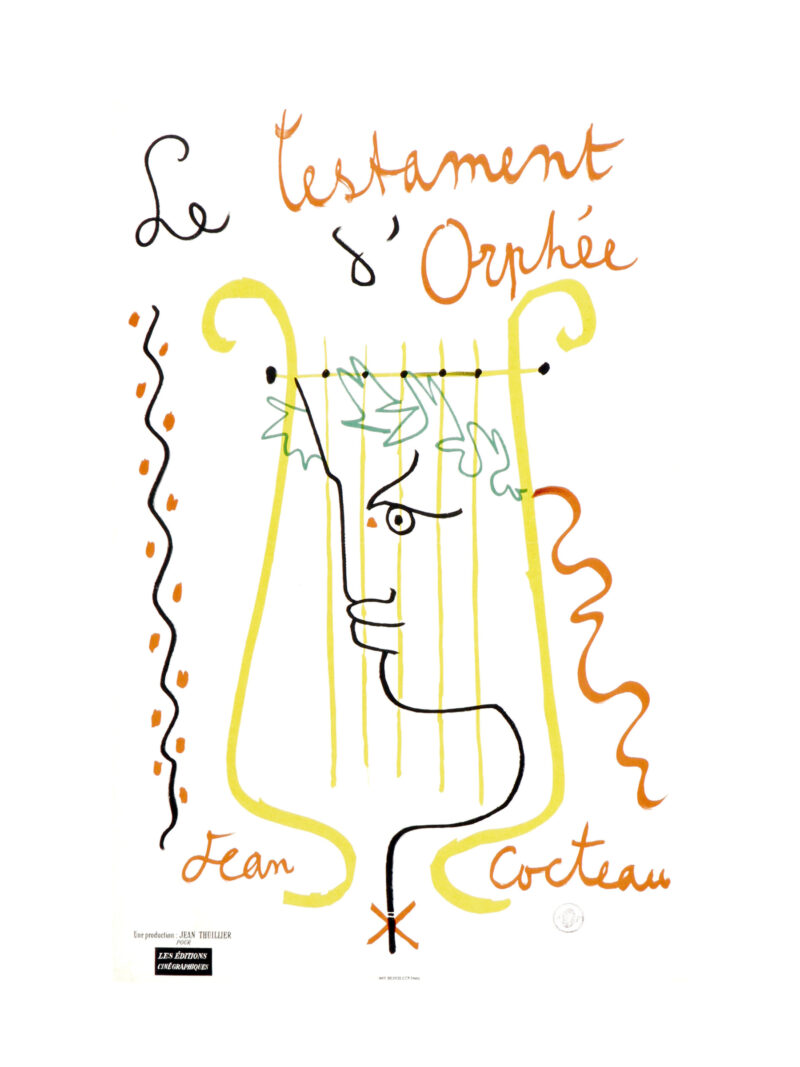 Le Testament
d'Orphée
Jean Cocteau
Une production : JEAN THUILLIER
POUR
LES ÉDITIONS
CINÉGRAPHIQUES